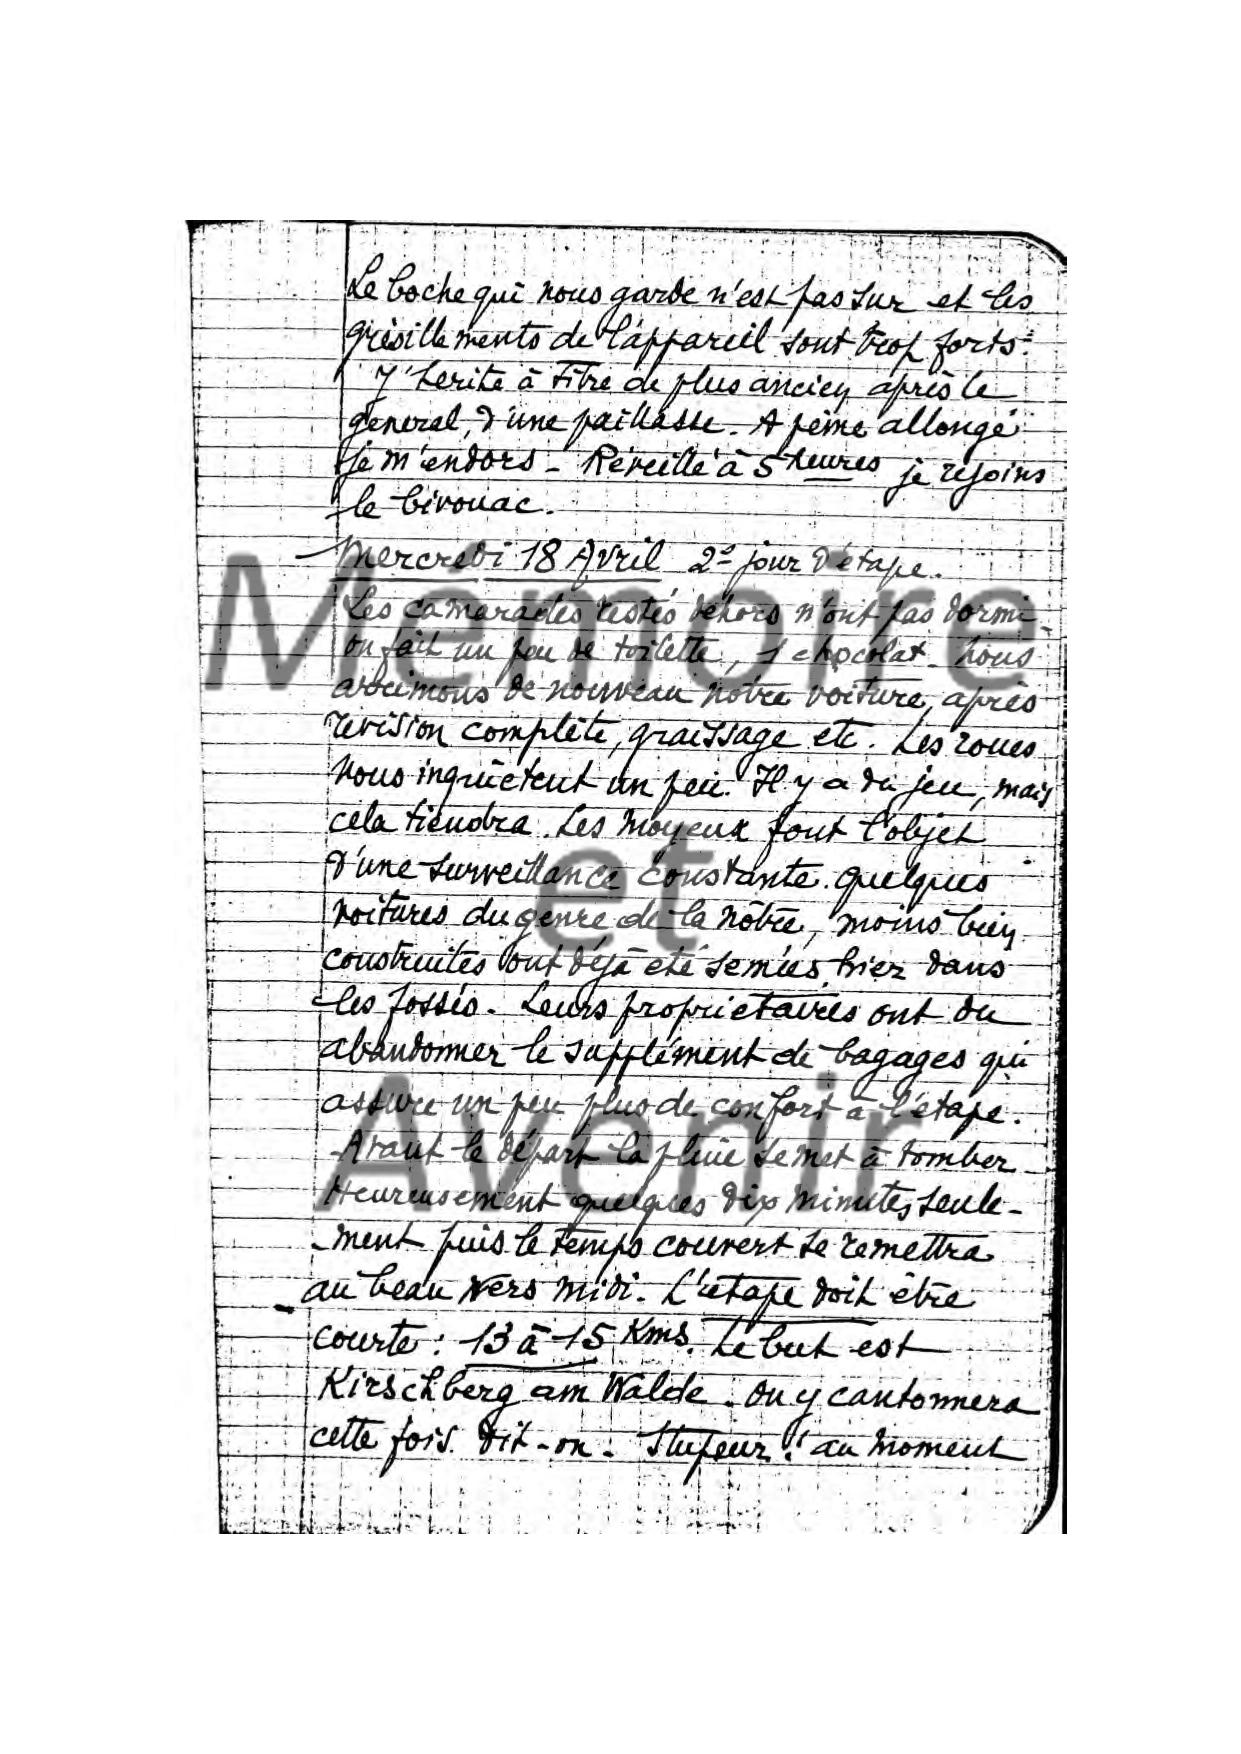 Le boche qui nous garde n'est pas sur et les
grésillements de l'appareil sont trop forts.
J'hérite à titre de plus ancien après le
général, d'une paillasse. A peine allongé
je m'endors - Réveillé à 5 heures je rejoins
le bivouac.
Mercredi 18 Avril 2e jour d'étape.
Les camarades restés dehors n'ont pas dormi.
on fait un peu de toilette, 1 chocolat. nous
arrimons de nouveau notre voiture, après
révision complète, graissage etc. Les roues
nous inquiètent un peu. Il y a du jeu, mais
cela tiendra. Les moyeux font l'objet
d'une surveillance constante. quelques
voitures du genre de la nôtre, moins bien
construites ont déjà été semées hier dans
les fossés. Leurs propriétaires ont du
abandonner le supplément de bagages qui
assure un peu plus de confort à l'étape.
Avant le départ la pluie se met à tomber
Heureusement quelques dix minutes seule-
-ment puis le temps couvert se remettra
au beau vers midi. L'étape doit être
courte : 13 à 15 Kms. Le but est
Kirschberg am Walde. On y cantonnera
cette fois. dit-on - Stupeur ! au moment
Mémoire
et
Avenir